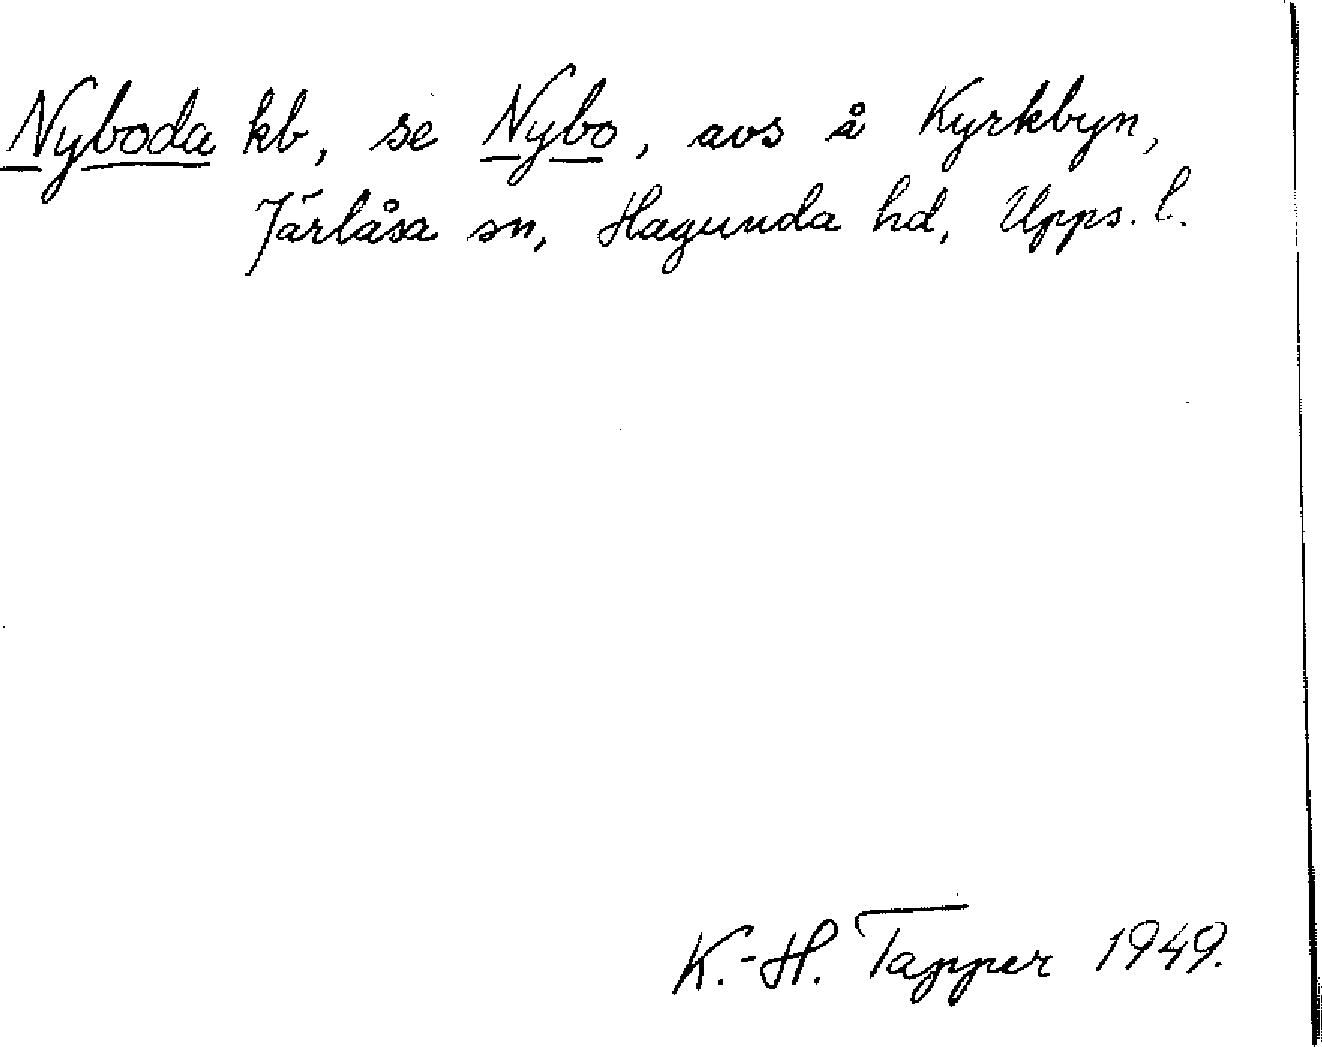 Nyboda kb, se Nybo, avs å Kyrkbyn,
Järlåsa sn, Hagunda hd, Upps. l.
K.-H. Tapper 1949.